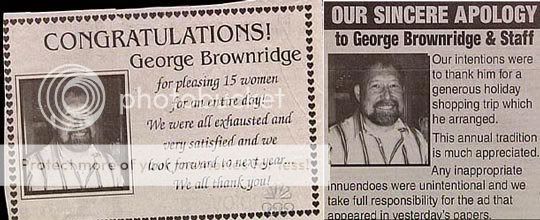 CONGRATULATIONS!
George Brownridge
for pleasing 15 women
for an entire day!
We were all exhausted and
very satisfied and we
look forward to next year...
We all thank you!
photobucket
Protect more of your memories for less!
OUR SINCERE APOLOGY
to George Brownridge & Staff
Our intentions were
to thank him for a
generous holiday
shopping trip which
he arranged.
This annual tradition
is much appreciated.
Any inappropriate
innuendoes were unintentional and we
take full responsibility for the ad that
appeared in yesterday's papers.